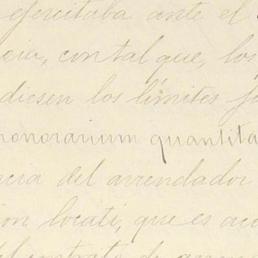 ejercitaba ante el
cia, con tal que, los
diesen los límites
honorarium quantita
cia del arrendador
ion locati, que es